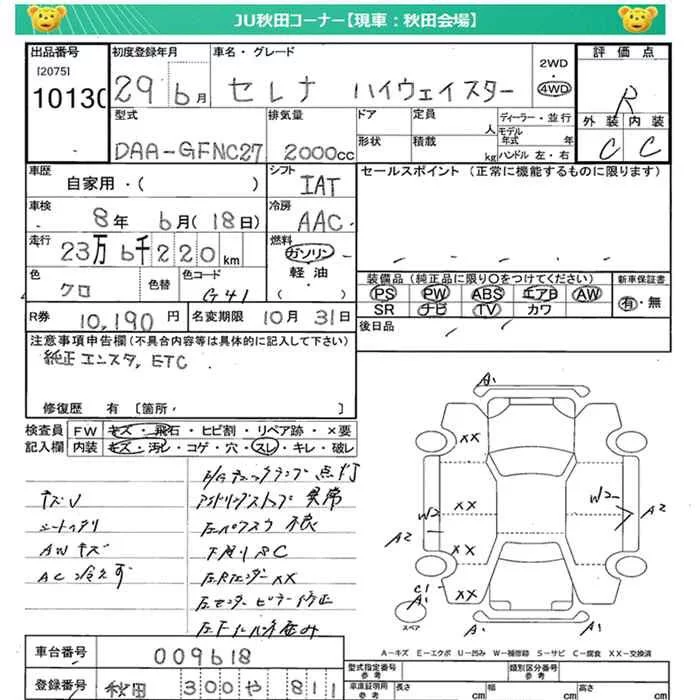 JU秋田コーナー【現車:秋田会場】
出品番号
[2075]
10130
初度登録年月
29 6月
車名・グレード
セレナ ハイウェイスター
2WD
・
4WD
評価点
R
外装 内装
C C
型式
DAA-GFNC27
排気量
2000cc
ドア
形状
定員
人
積載
kg
ディーラー・並行
モデル年式 年
ハンドル 左・右
車歴
自家用・( )
シフト
IAT
セールスポイント(正常に機能するものに限ります)
車検
8年 6月(18日)
冷房
AAC
走行
23万6千220km
燃料
ガソリン
軽油
( ・ )
色
クロ
色替
色コード
G41
装備品(純正品に限り○をつけてください)
PS PW ABS エアB AW
SR ナビ TV カワ
新車保証書
有・無
R券 10,190円
名変期限 10月31日
後日品
注意事項申告欄(不具合内容等は具体的に記入して下さい)
純正エンスタ, ETC
修復歴 有 〔箇所・ 〕
検査員記入欄
FW キズ・飛石・ヒビ割・リペア跡・×要
内装 キズ・汚レ・コゲ・穴・スレ・キレ・破レ
E/Gチェックランプ点灯
キズU
アイドリングストップ異常
AWキズ
AC冷えず
左Rフェンダー××
左センターピラー修正
A1
××
××
××
××
W2
W2
A2
A2
C1
A1
A1
A1
スペア
A-キズ E-エクボ U-凹み W-補修跡 S-サビ C-腐食 XX-交換済
車台番号 009618
登録番号 秋田 300 や 811
型式指定番号 参考
類別区分番号 参考
車庫証明用 参考
長さ cm
幅 cm
高さ cm